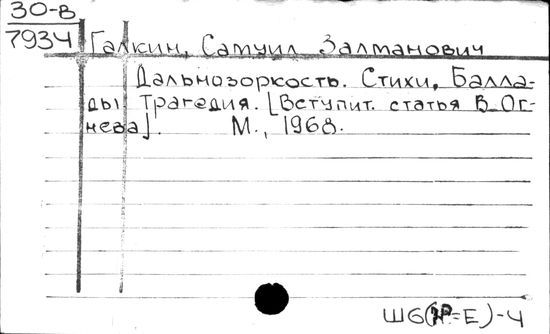 30-8
7934
Галкин, Самуил Залманович
Дальнозоркость. Стихи, Балла-
ды, Трагедия. [Вступит. статья В. Ог-
нева]. М., 1968.
Ш6(=Е)-4